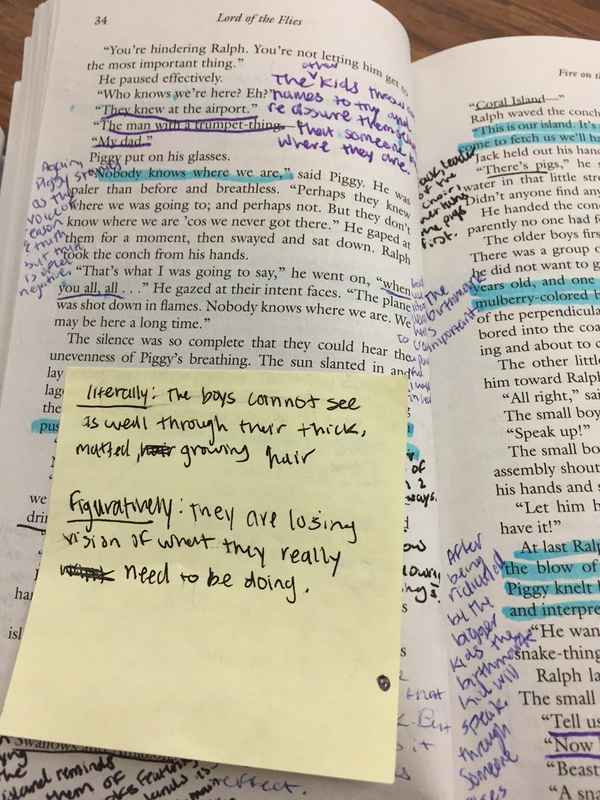 34
Lord of the Flies
"You're hindering Ralph. You're not letting him get to
the most important thing."
He paused effectively.
"Who knows we're here? Eh?"
"They knew at the airport."
"The man with a trumpet-thing—"
"My dad."
Piggy put on his glasses.
"Nobody knows where we are," said Piggy. He was
paler than before and breathless. "Perhaps they knew
where we was going to; and perhaps not. But they don't
know where we are 'cos we never got there." He gaped at
them for a moment, then swayed and sat down. Ralph
took the conch from his hands.
"That's what I was going to say," he went on, "when
you all, all . . ." He gazed at their intent faces. "The plane
was shot down in flames. Nobody knows where we are. We
may be here a long time."
The silence was so complete that they could hear the
unevenness of Piggy's breathing. The sun slanted in and
lay
the
we
other
The kids throw
names to try and
reassure themselves
that someone
where they are.
Again,
Piggy stands
as the
voice of
reason
& truth
but truth
is often
negative.
The
birthmark
important
literally: The boys cannot see
as well through their thick,
matted, growing hair
Figuratively: They are losing
vision of what they really
need to be doing.
them of
effect.
Fire on
"Coral Island—"
Ralph waved the conch
"This is our island. It's
come to fetch us we'll ha
Jack held out his hand
"There's pigs," he
water in that little stre
Didn't anyone find any
He handed the con
parently no one had f
The older boys firs
There was a group o
he did not want to g
years old, and one
mulberry-colored b
of the perpendicula
bored into the coa
ing and about to c
The other little
him toward Ralph
"All right," sai
The small boy
"Speak up!"
The small bo
assembly shout
his hands and s
"Let him h
have it!"
At last Ralp
the blow of
Piggy knelt b
and interpre
"He wan
snake-thing
Ralph la
The small
"Tell us
"Now
"Beast
"A sna
of the
choir
the pigs
first.
After
being
ridiculed
by the
bigger
kids the
birthmark
kid will
speak
through
someone